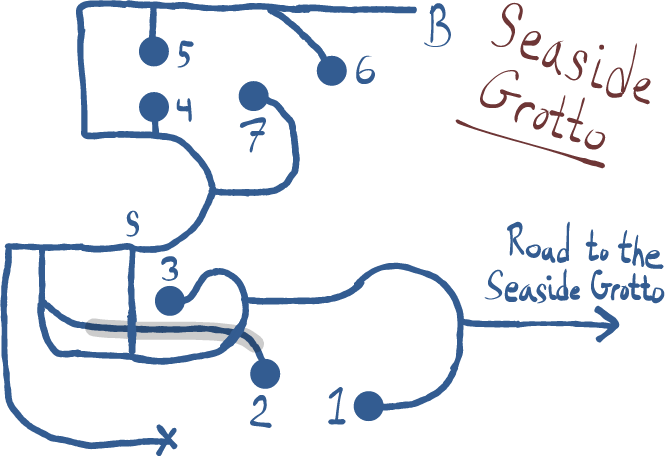 B
Seaside
Grotto
5
6
4
7
S
3
Road to the
Seaside Grotto
2
1
X